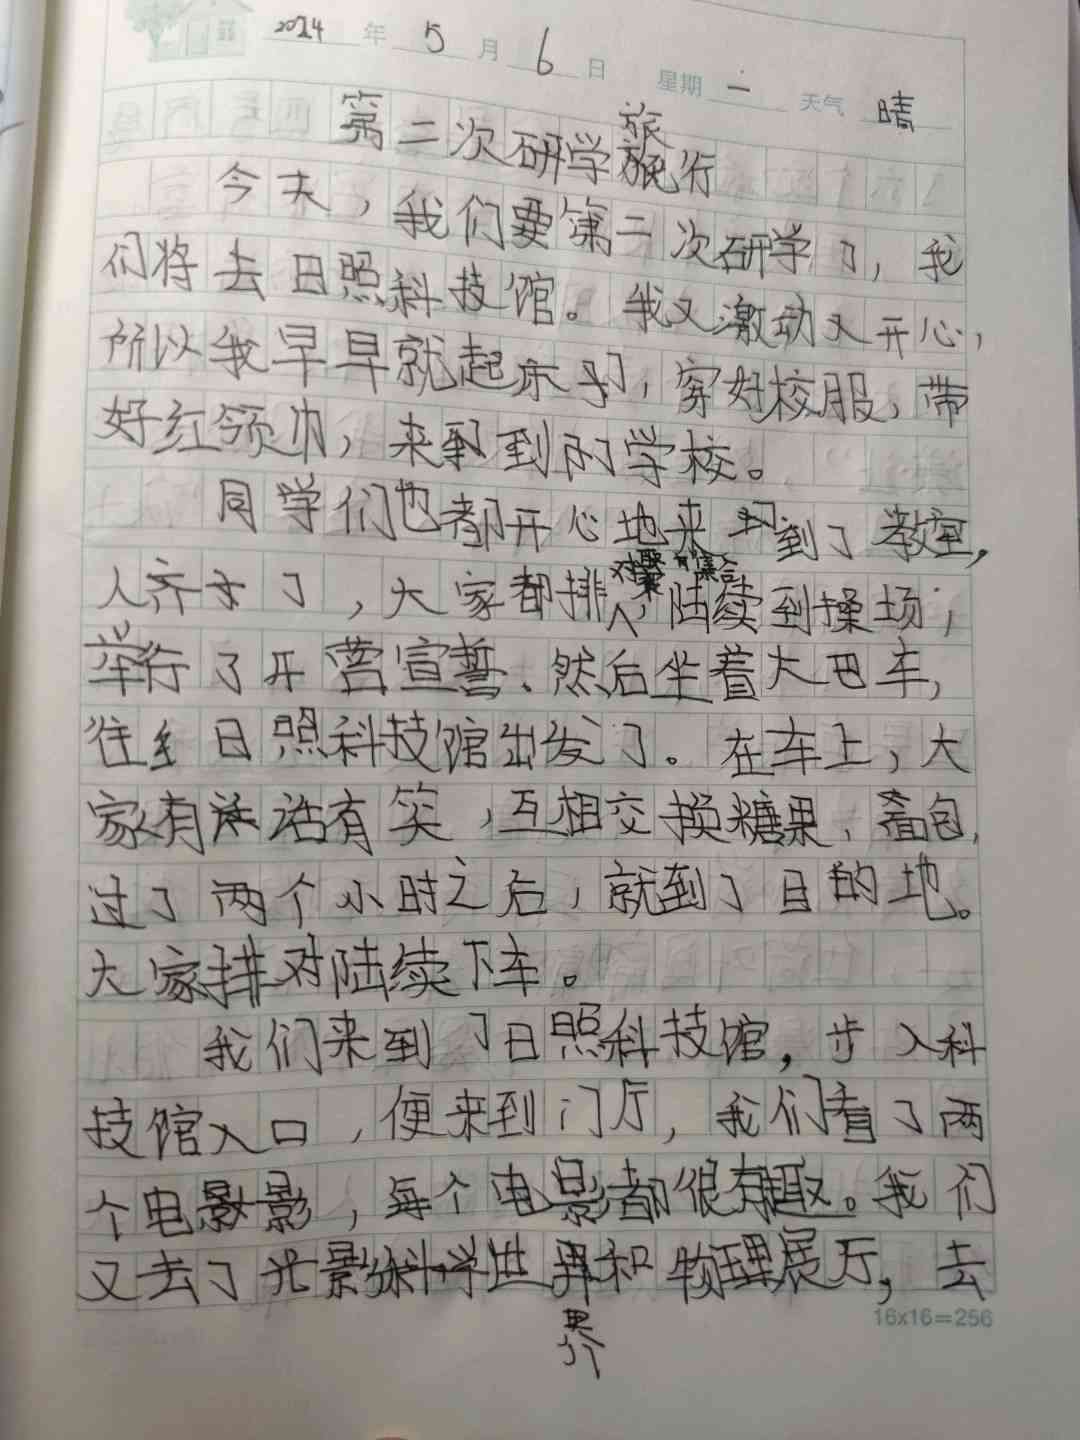 2024年5月6日 星期一 天气 晴
第二次研学旅行
今天，我们要第二次研学了，我
们将去日照科技馆。我又激动又开心，
所以我早早就起床了，穿好校服，带
好红领巾，来到的学校。
同学们也都开心地来到了教室，
人齐了，大家都排队，陆续到操场，
举行了开营宣誓、然后坐着大巴车，
往日照科技馆出发了。在车上，大
家有说话有笑，互相交换糖果、面包，
过了两个小时之后，就到了目的地。
大家排对陆续下车。
我们来到了日照科技馆，步入科
技馆入口，便来到门厅，我们看了两
个电影，每个电影都很有趣。我们
又去了光影科学世界和物理展厅，去
界
16x16=256